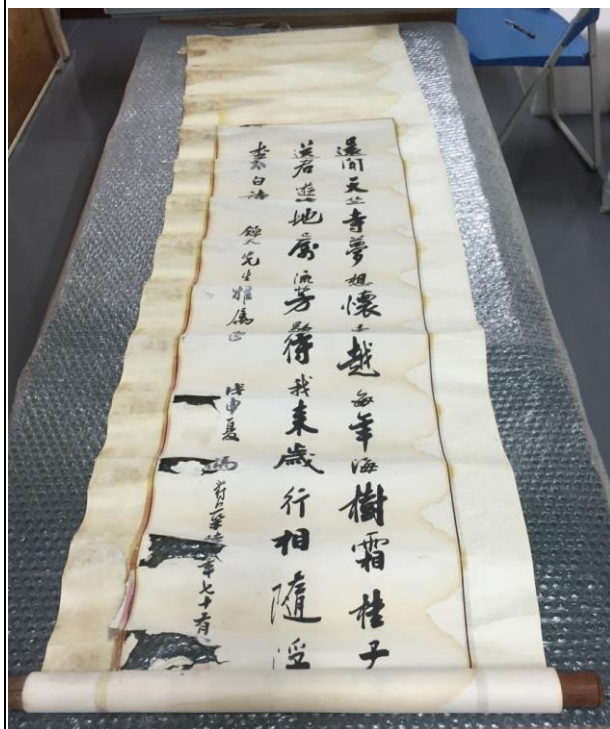 還聞天竺寺夢想懷東越每年海樹霜桂子
送君遊此地屬流芳待我來歲行相隨浮
李白詩 先生雅屬正 戊申夏 馮 年七十有